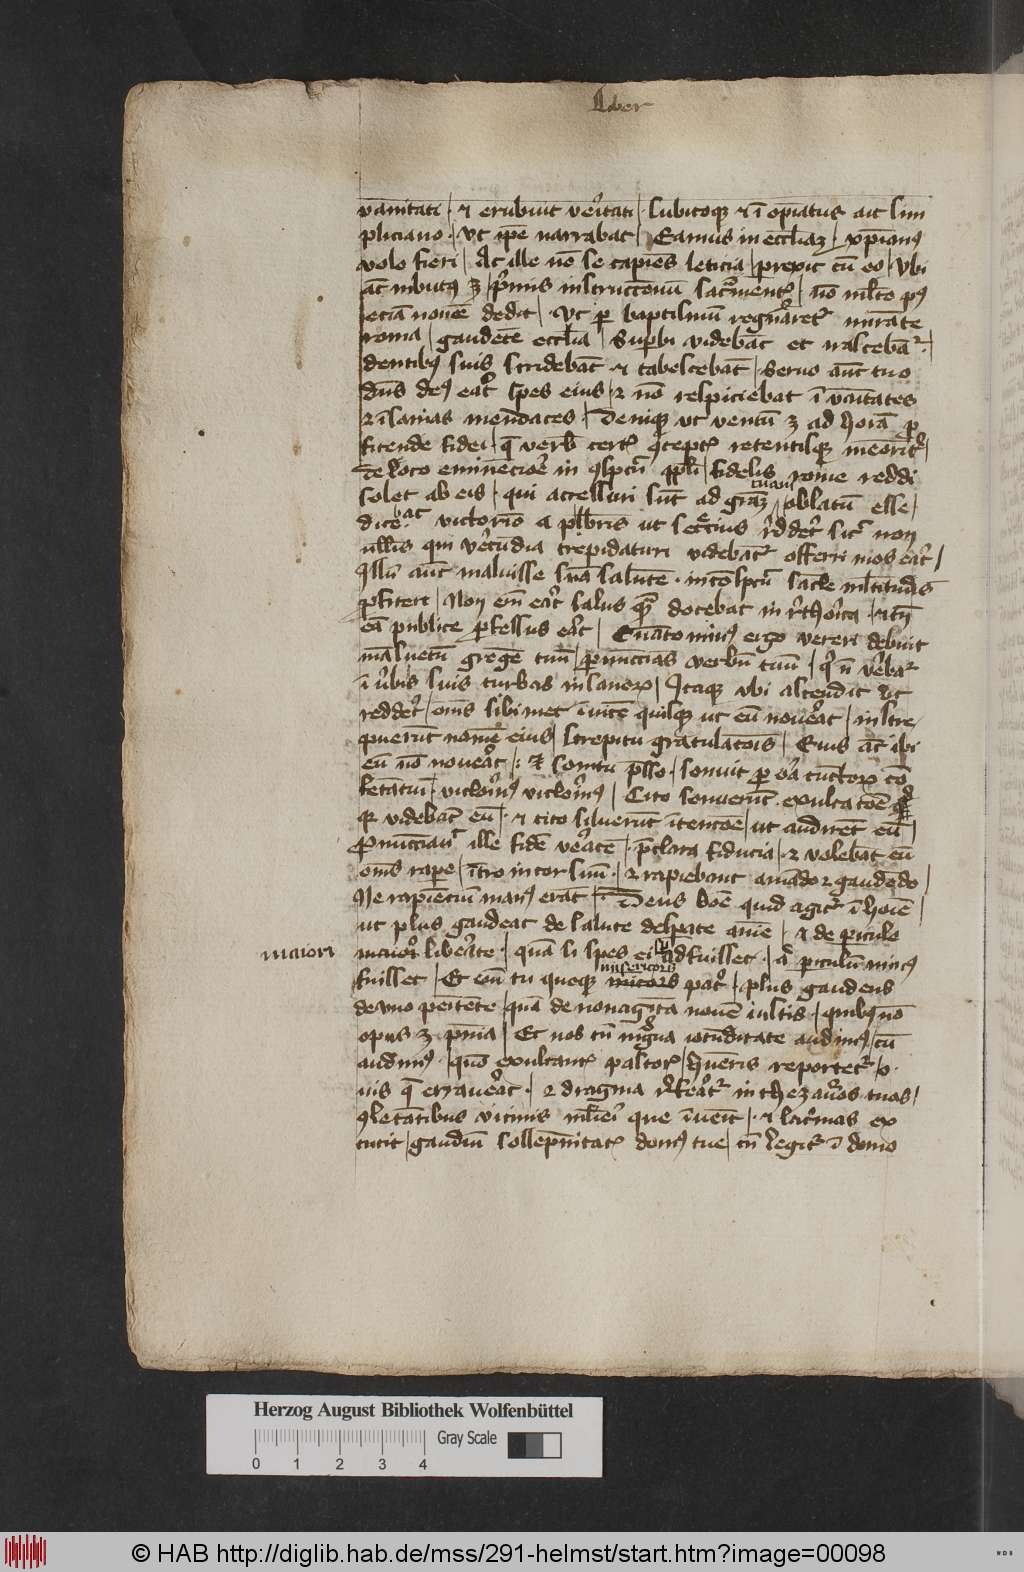 Liber
vanitati · et erubuit veritati · Subitoque et inopinatus ait sim
pliciano · ut ipse narrabat / Eamus in ecclesiam · xpianus
volo fieri / At ille non se capiens leticia / perrexit cum eo / Ubi
aut inbutus est / primis instructionum sacramentis / non multo post
etiam nomen dedit / · Ut per baptismum regeneraretur mirante
roma / gaudente ecclesia / Superbi videbant et irascebantur ·
dentibus suis stridebant et tabescebant / · Servo autem tuo
dominus deus erat spes eius / et non respiciebat in vanitates
et insanias mendaces · Denique ut ventum est ad horam pro
fitende fidei · que verbis certis conceptis retentisque memoriter /
de loco eminenciore in conspectu populi / fidelis rome reddi
solet ab eis · qui accessuri sunt ad graciam tuam / oblatum esse /
dicebat victorino a presbiteris ut secrecius redderet sicut non
nullis qui verecundia trepidaturi videbantur offerri mos erat /
Illum autem maluisse suam salutem · in conspectu sancte multitudinis
profiteri / Non enim erat salus quam docebat in rethorica / et tamen
eam publice professus erat / Quanto minus ergo vereri debuit
mansuetum gregem tuum / pronuncians verbum tuum / qui non verebatur
in verbis suis turbas insanorum / Itaque ubi ascendit ut
redderet / omnes sibimet invicem quisque ut eum noverat / instre
puerunt nomen eius / strepitu gratulationis / Quis autem ibi
eum non noverat / : Et sonitu presso · sonuit per ora cunctorum con
letantium · victorinus victorinus / Cito sonuerunt exultatione
quia videbant eum / · et cito siluerunt intencione / ut audirent eum /
Pronunciavit ille fidem veracem · preclara fiducia / · et volebant eum
omnes rapere / intro in cor suum · / et rapiebant amando et gaudendo /
He rapiencium manus erant / · Deus bone quid agitur in homine /
ut plus gaudeat de salute desperate anime / · et de periculo
maiori
maiori liberate · / quam si spes ei semper adfuisset · / aut periculum minus
fuisset · / Et enim tu quoque misericors misericors pater · / plus gaudens
de uno penitente · quam de nonaginta novem iustis · / quibus non
opus est penitencia / Et nos cum magna iocunditate audimus / cum
audimus · quam exultantis pastoris / humeris reportetur / o ·
vis que erraverat · / et dragma referatur in thezauros tuos /
conletantibus vicinis mulieri que invenit · / et lacrimas ex
cutit / gaudium sollempnitatis domus tue / cum legitur in domo
Herzog August Bibliothek Wolfenbüttel
Gray Scale
0 1 2 3 4
© HAB http://diglib.hab.de/mss/291-helmst/start.htm?image=00098